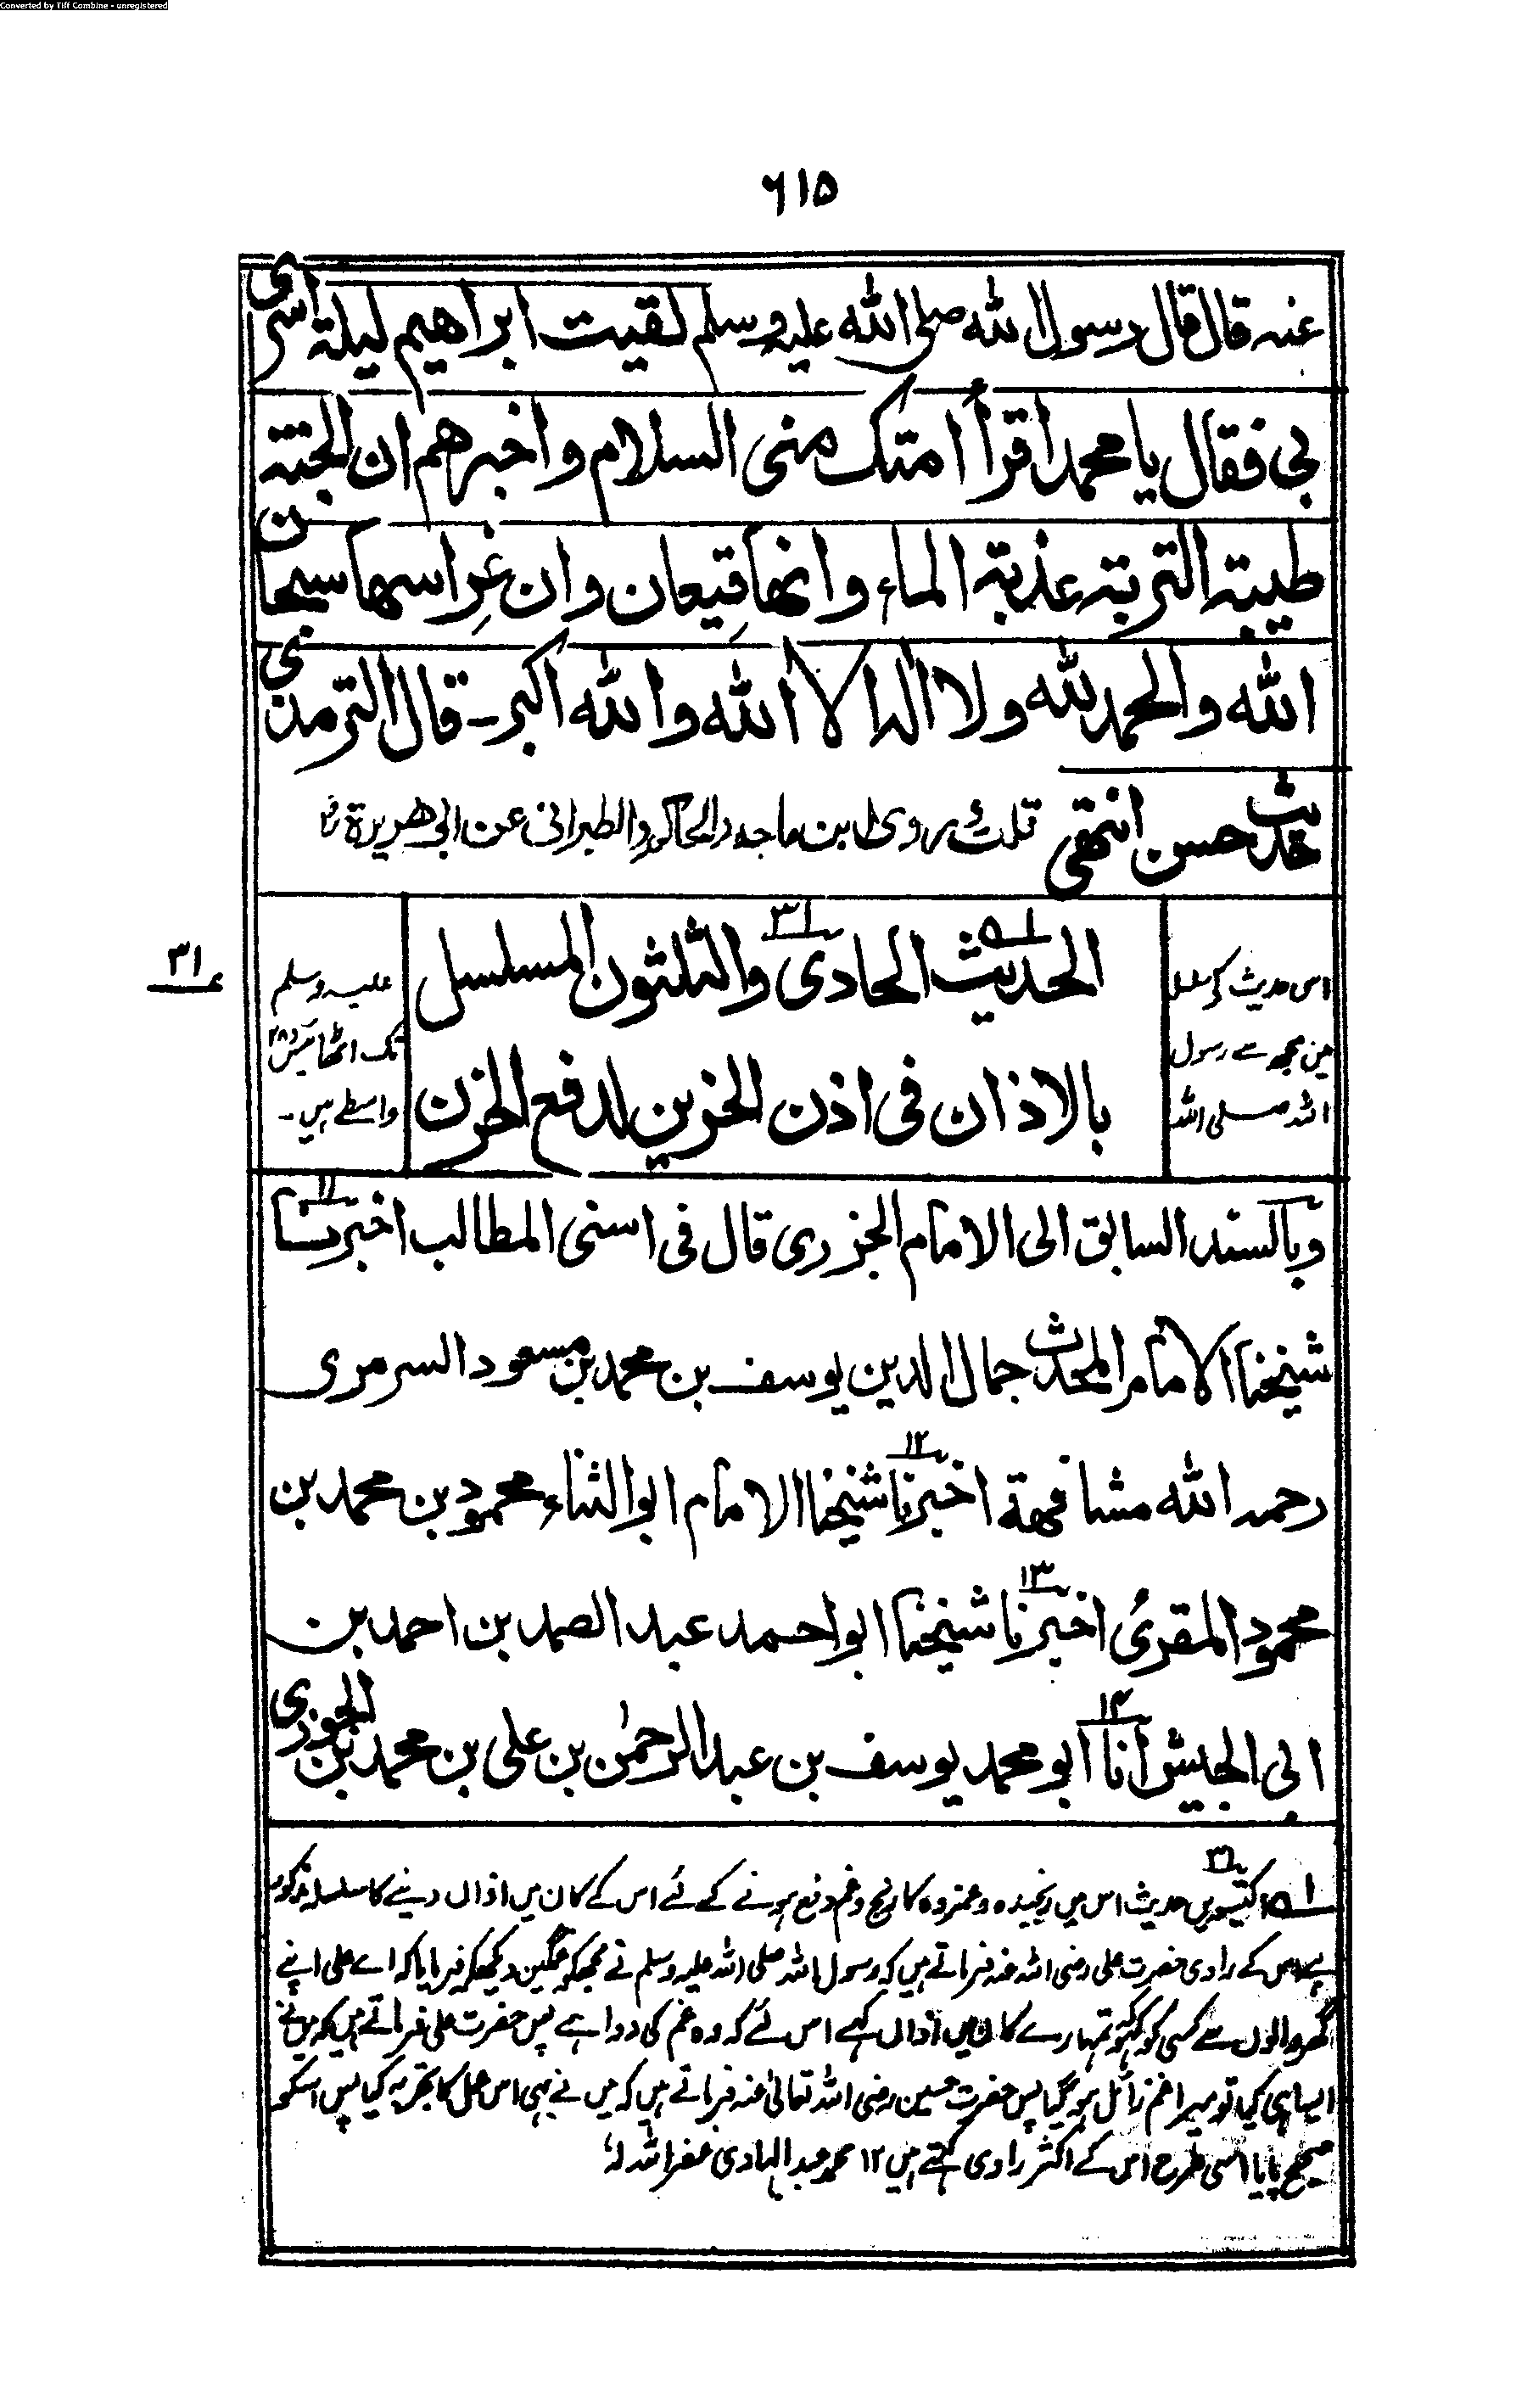 Converted by Tiff Combine - unregistered
۶۱۵
عنہ قال قال رسول اللہ صلی اللہ علیہ وسلم لقیت ابراھیم لیلۃ اسری
بی فقال یا محمد اقرأ امتک منی السلام واخبرھم ان الجنۃ
طیبۃ التربۃ عذبۃ الماء وانھا قیعان وان غراسھا سبحان
اللہ والحمد للہ ولا الہ الا اللہ واللہ اکبر۔ قال الترمذی
حدیث حسن انتھی قلت روی ابن ماجہ والحاکم والطبرانی عن ابی ھریرۃ
اس حدیث کے سلسلہ
میں مجھ سے رسول
اللہ صلی اللہ
الحدیث الحادی ۳۱ والثلثون المسلسل
بالاذان فی اذن الحزین لدفع الحزن
علیہ وسلم
تک اٹھائیس ۲۸
واسطے ہیں۔
۳۱
وبالسند السابق الی الامام الجزری قال فی اسنی المطالب اخبرنا ۱۱
شیخنا الامام المحدث جمال الدین یوسف بن محمد بن مسعود السرمری
رحمہ اللہ مشافھۃ اخبرنا ۱۲ شیخنا الامام ابو الثناء محمود بن محمد بن
محمود المقرئ اخبرنا ۱۳ شیخنا ابو احمد عبد الصمد بن احمد بن
ابی الجیش أنا ۱۴ ابو محمد یوسف بن عبد الرحمٰن بن علی بن محمد بن الجوزی
۱ھ اکتیسویں ۳۱ حدیث اس میں رنجیدہ وغمزدہ کا رنج وغم دفع ہونے کے لئے اس کے کان میں اذاں دینے کا سلسلہ مذکور
ہے اس کے راوی حضرت علی رضی اللہ عنہ فرماتے ہیں کہ رسول اللہ صلی اللہ علیہ وسلم نے مجھکو غمگین دیکھکر فرمایا کہ اے علی اپنے
گھر والوں سے کسی کو کہو تمہارے کان میں اذاں کہے اس لئے کہ وہ غم کی دوا ہے پس حضرت علی فرماتے ہیں کہ میں نے
ایسا ہی کیا تو میرا غم زائل ہو گیا پس حضرت حسین رضی اللہ تعالیٰ عنہ فرماتے ہیں کہ میں نے بہی اس عمل کا تجربہ کیا پس اسکو
صحیح پایا اسی طرح اس کے اکثر راوی کہتے ہیں ۱۲ محمد عبد الہادی غفر اللہ لہٗ